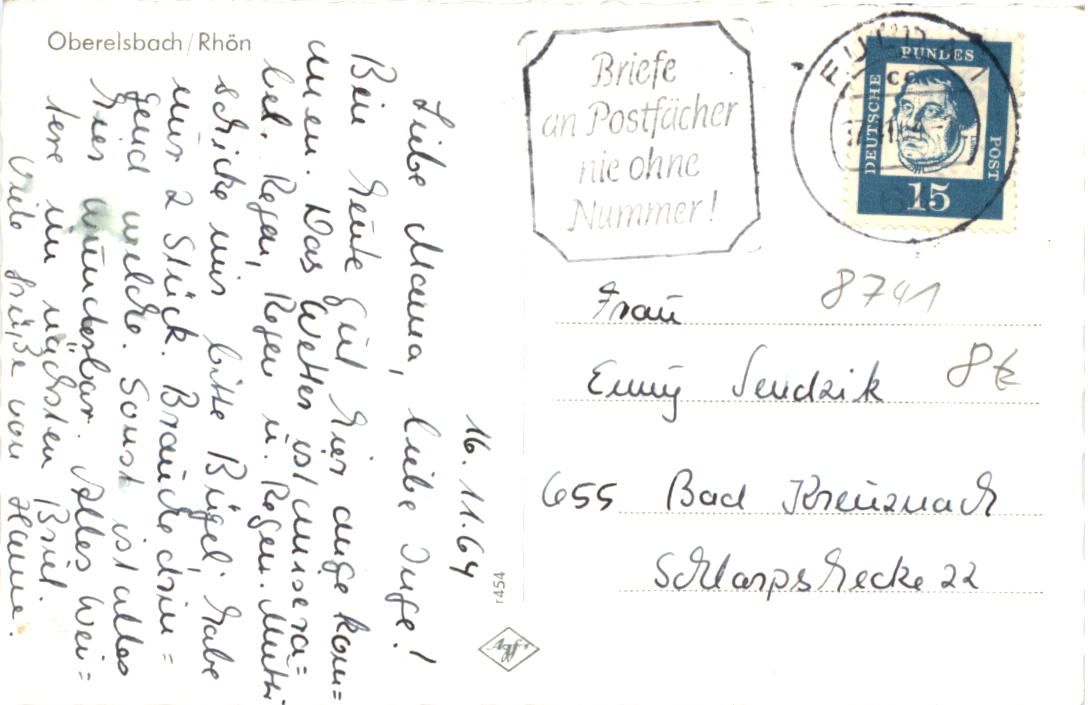 Oberelsbach/Rhön
16.11.64
Liebe Mama, liebe Inge!
Bin heute gut hier ange kom=
men. Das Wetter ist misera=
bel. Regen, Regen u. Regen. Mutti
schicke mir bitte Bügel; habe
nur 2 Stück. Brauche drin=
gend welche. Sonst ist alles
hier wunderbar. Alles wei=
tere im nächsten Brief.
Viele Grüße von Hanne.
r 454
Agfa
Briefe
an Postfächer
nie ohne
Nummer!
FULDA
DEUTSCHE
BUNDES
POST
15
8741
Frau
Emmy Sendzik
655 Bad Kreuznach
Schlarpshecke 22